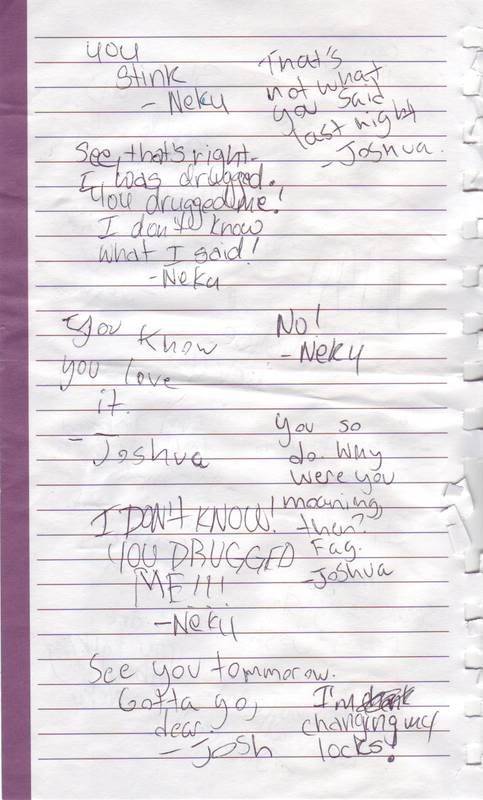 you
stink
- Neku
That's
not what
you said
last night
- Joshua.
See, that's right.
I was drugged.
You drugged me!
I don't know
what I said!
- Neku
You know
you love
it.
- Joshua
No!
- Neky
You so
do. Why
were you
moaning,
then?
Fag.
- Joshua
I DON'T KNOW!
YOU DRUGGED
ME!!!
- Neky
See you tommorow.
Gotta go,
dear.
- Josh
I'm
changing my
locks!